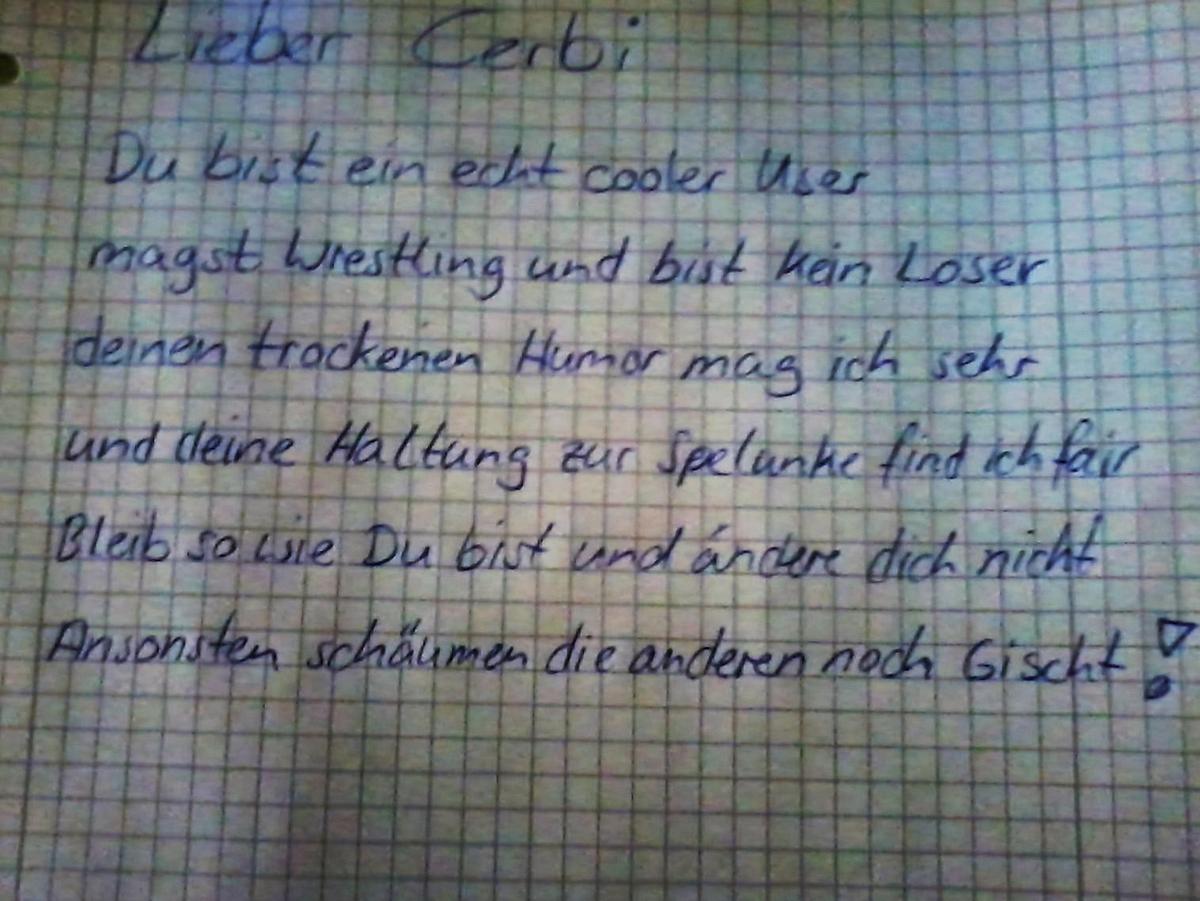 Lieber Cerbi
Du bist ein echt cooler User
magst Wrestling und bist kein Loser
deinen trockenen Humor mag ich sehr
und deine Haltung zur Spelunke find ich fair
Bleib so wie Du bist und ändere dich nicht
Ansonsten schäumen die anderen noch Gischt!